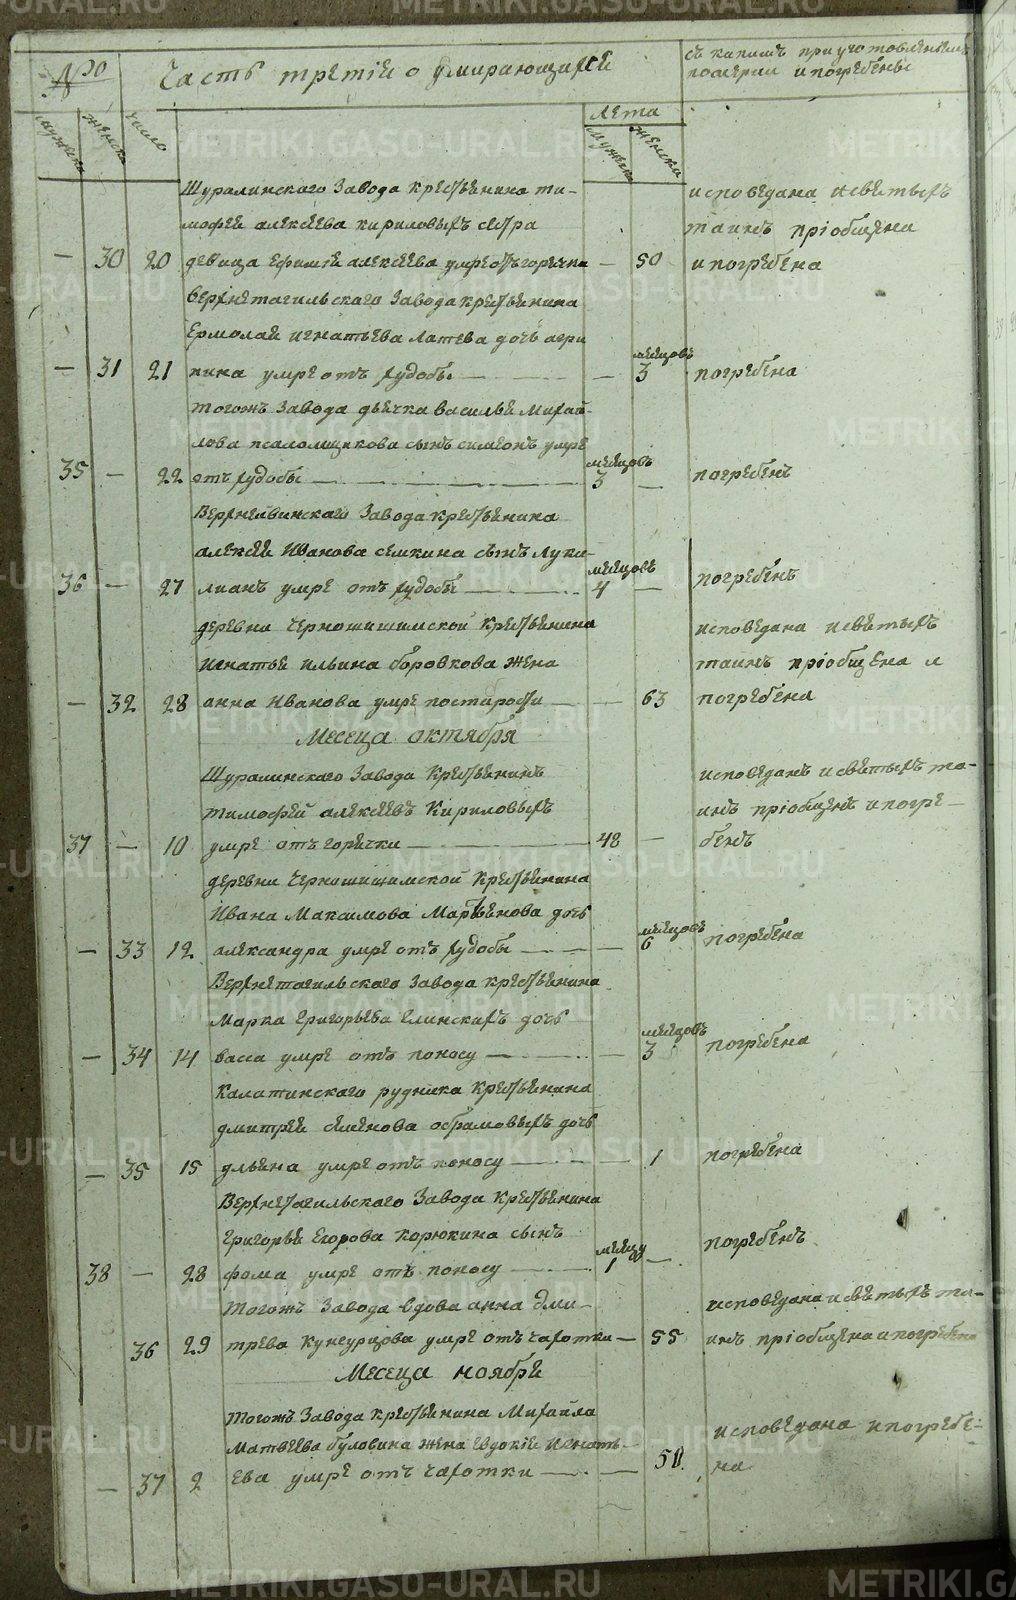 №ро
Часть третiя о умирающихся
съ какимъ приуготовленiемъ
померли и погребены
мужеска
женска
число
лета
мужеска
женска
Шуралинскаго завода крестьянина ти-
мофея алексеева кириловыхъ сестра
девица Ефимiя алексеева умре отъ горячки
— 30 20 — 50
исповедана и святыхъ
таинъ прiобщена
и погребена
верхнетагильскаго завода крестьянина
Ермолая игнатьева Латева дочь агри
пина умре отъ худобы
— 31 21 — месяцовъ 3
погребена
тогожъ завода дьячка василья михай-
лова псаломщикова сынъ симеонъ умре
отъ худобы
35 — 22 месяцовъ 3 —
погребенъ
Верхнейвинскаго завода крестьянина
алексея Иванова семкина сынъ луки-
лианъ умре отъ худобы
36 — 27 месяцовъ 4 —
погребенъ
деревни Черношишимской крестьянина
игнатья ильина боровкова жена
анна Иванова умре по старости
— 32 28 — 63
исповедана и святыхъ
таинъ прiобщена и
погребена
Месеца октября
Шуралинскаго завода крестьянинъ
тимофей алексеевъ Кириловыхъ
умре отъ горячки
37 — 10 48 —
исповеданъ и святыхъ та-
инъ прiобщенъ и погре-
бенъ
деревни Черношишимской крестьянина
Ивана Максимова Мартьянова дочь
александра умре отъ худобы
— 33 12 — месяцовъ 6
погребена
Верхнетагильскаго завода крестьянина
Марка Григорьева Елинскихъ дочь
васса умре отъ поносу
— 34 14 — месяцовъ 3
погребена
Калатинскаго рудника крестьянина
дмитрея семенова обрамовыхъ дочь
ульяна умре отъ поносу
— 35 15 — 1
погребена
Верхнетагильскаго завода крестьянина
григорья Егорова корюкина сынъ
фома умре отъ поносу
38 — 28 месяцъ 1 —
погребенъ
тогожъ завода вдова анна дми-
трева Кунгурцова умре отъ чахотки —
36 29 55
исповедана и святыхъ та-
инъ прiобщена и погребена
Месеца ноября
тогожъ завода крестьянина Михайла
Матвеева буловина жена Евдокiя Игнать-
ева умре отъ чахотки
— 37 2 — 51
исповедана и погребе-
на
METRIKI.GASO-URAL.RU